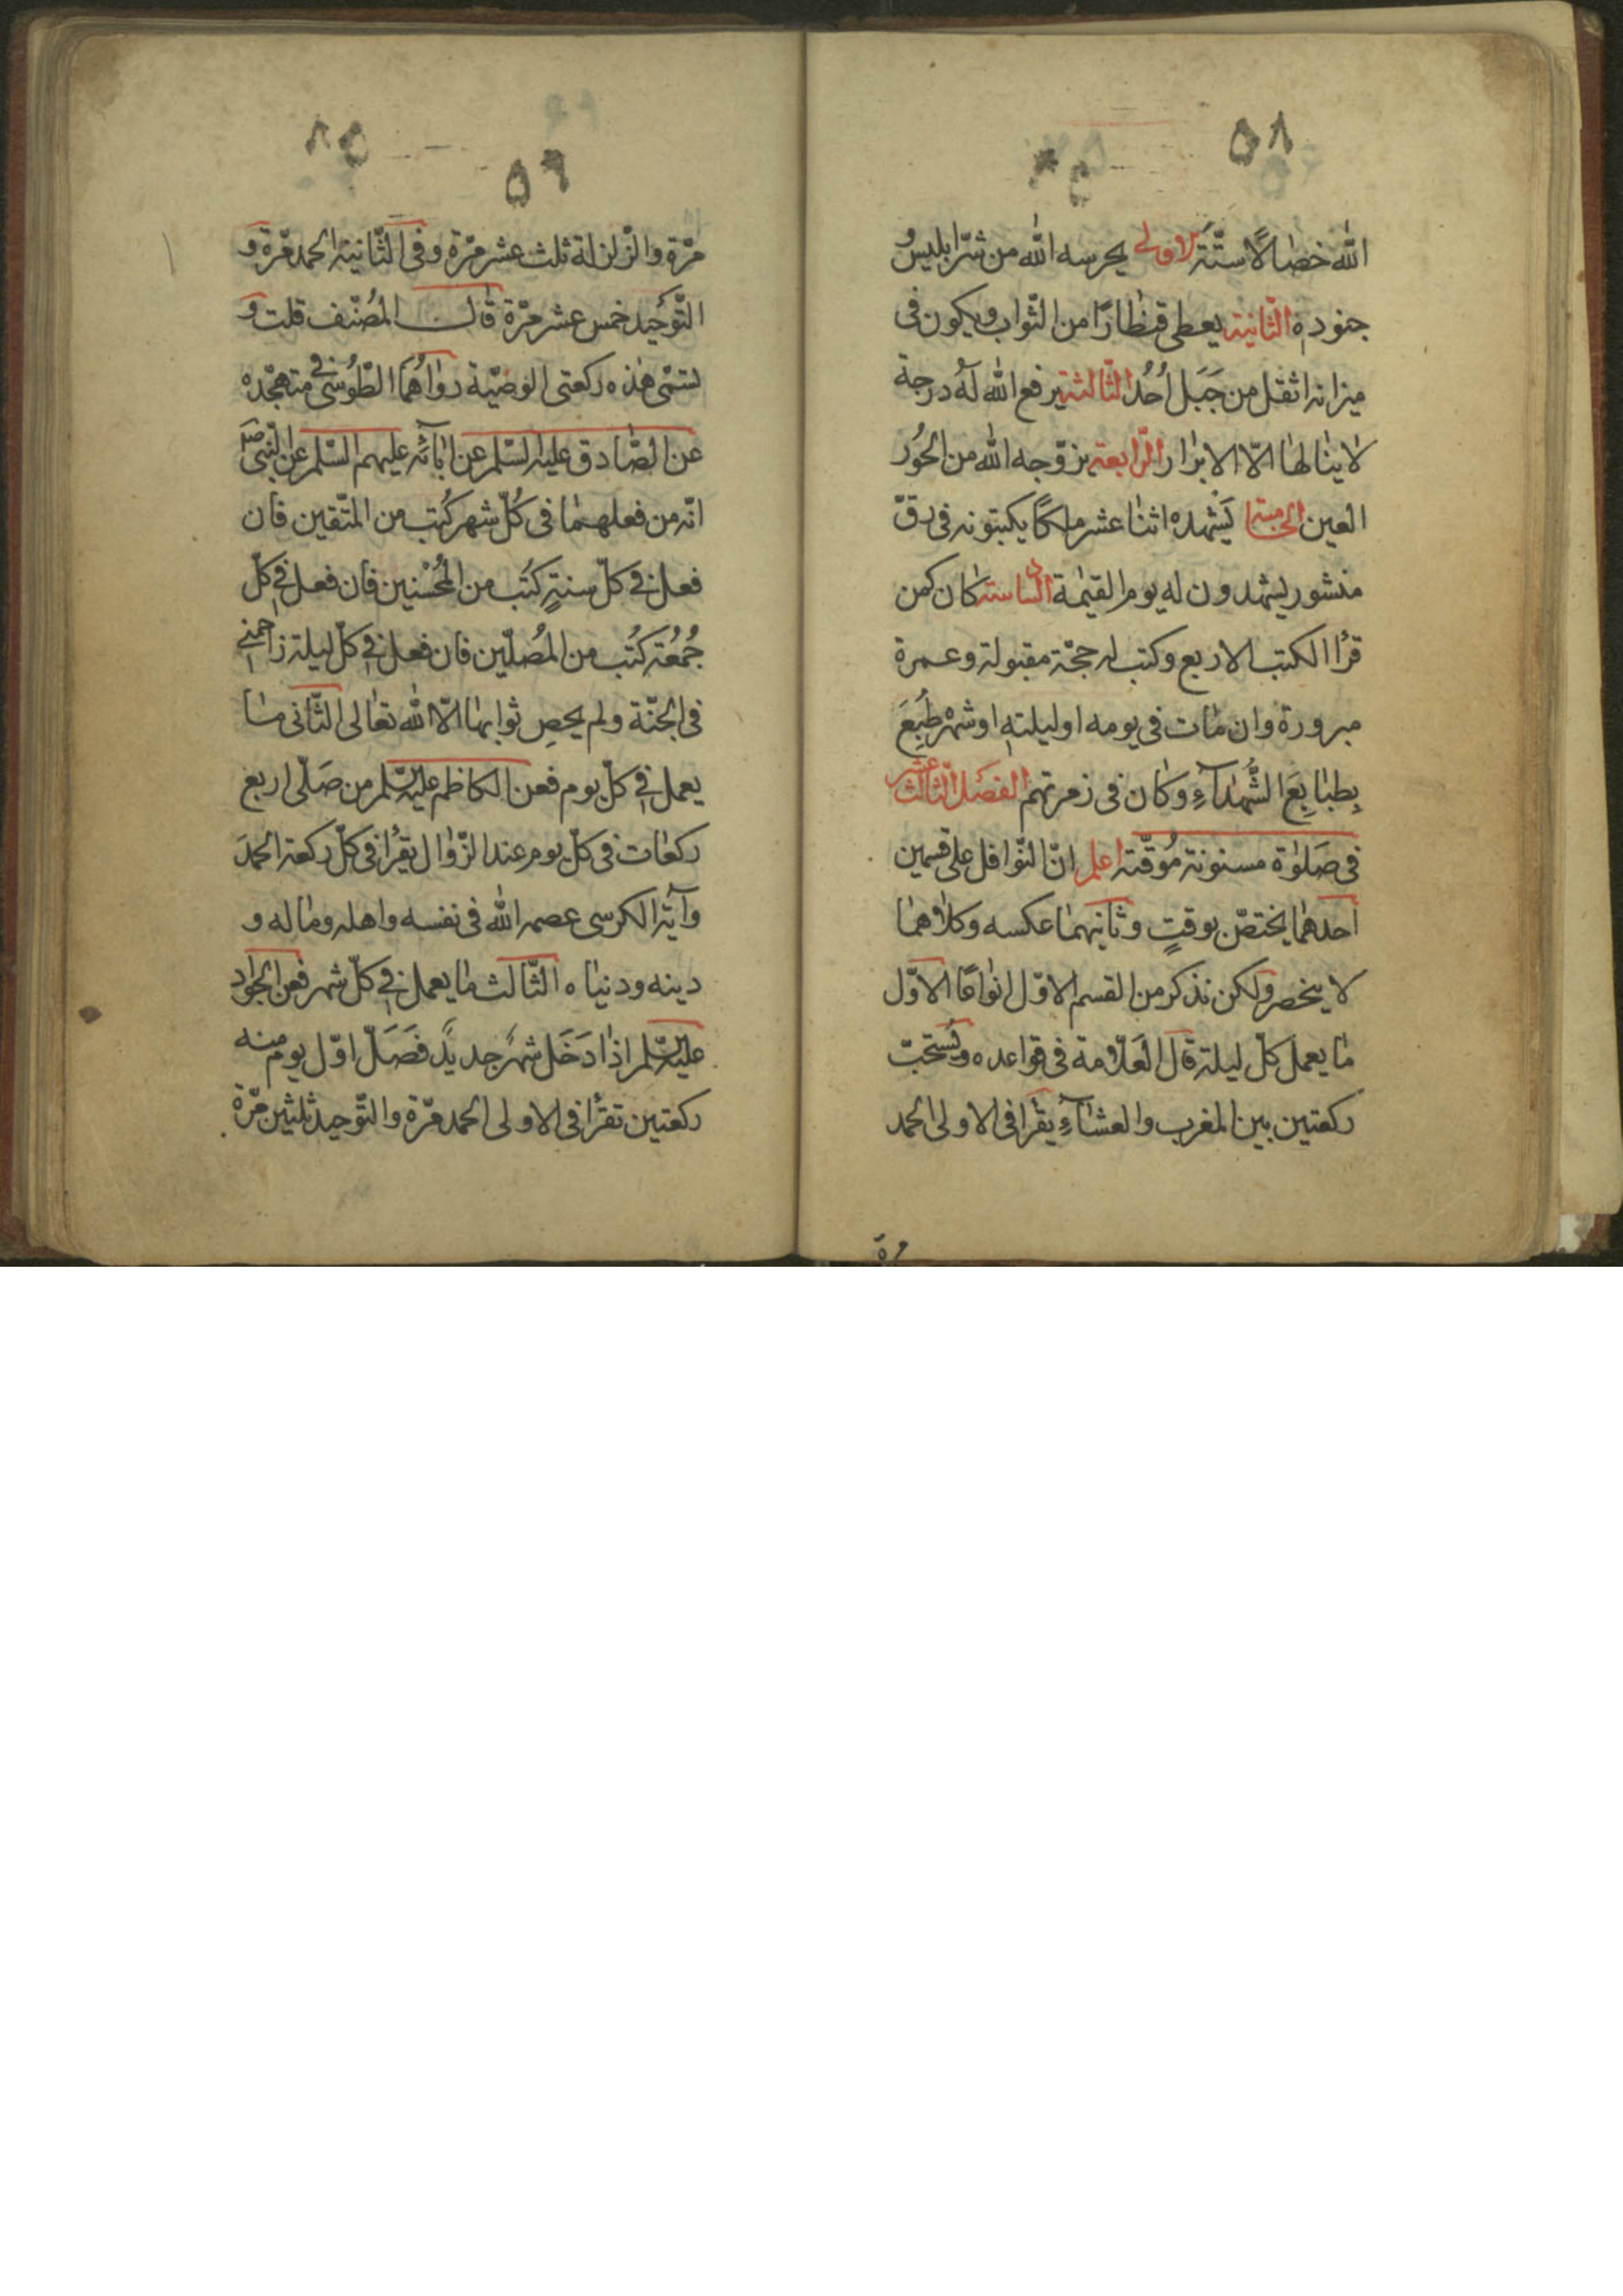 ۵۸
الله خصالًا ستّة الاولى يحرسه الله من شرّ ابليس و
جنوده الثّانية يعطى قنطارًا من الثّواب ويكون فى
ميزانه اثقل من جَبَل اُحُد الثّالثة يرفع الله له درجة
لا ينالها الّا الابرار الرّابعة يزوّجه الله من الحُور
العين الخامسة يَشهده اثنا عشر ملكًا يكتبونه فى رقّ
منشور يشهدون له يوم القيٰمة السادسة كان كمن
قرأ الكتب الاربع وكتب له حجّة مقبولة وعمرة
مبرورة وان مات فى يومه او ليلتهِ او شهره طُبِعَ
بِطبابِعَ الشُّهدآءِ وكان فى زمرتهم الفصل الثّالث عشر
فى صَلوٰة مسنونة مُوقّتة اعلم انّ النّوافل على قسمين
احدهما يختصّ بوقتٍ وثانيهما عكسه وكلاهما
لا ينحصر ولكن نذكر من القسم الاوّل انواعًا الاوّل
ما يعمل كلّ ليلة قال العَلّامة فى قواعده ويُستحبّ
ركعتين بين المغرب والعشآءِ يقرأ فى الاولى الحمد
مرة
۵۹
مرّة والزّلزلة ثلث عشر مرّة وفى الثّانية الحمد مرّة و
التّوحيد خمس عشر مرّة قال المُصنّف قلت و
تسمّى هذه ركعتى الوصيّة رواهُمَا الطّوُسى فى متهجّده
عن الصّادق عليه السّلم عن ابآئه عليهم السّلم عن النّبى ص
انّه من فعلهما فى كُلّ شهر كُتب من المتّقين فان
فعل فى كلّ سنةٍ كُتب من المُحْسنين فان فعل فى كلّ
جُمُعَة كُتب من المُصلّين فان فعل فى كلّ ليلة زاحمنى
فى الجنّة ولم يحصِ ثوابهما الّا الله تعالى الثّانى ما
يعمل فى كلّ يوم فعن الكاظم عليه السّلم من صَلّى اربع
ركعات فى كلّ يوم عند الزّوال يقرأ فى كلّ ركعة الحمدَ
وآية الكرسى عصمه الله فى نفسه واهله وماله و
دينه ودنياه الثّالث ما يعمل فى كلّ شهر فعن الجواد
عليه السّلم اذا دَخَل شهرٌ جديدٌ فَصَلّ اوّل يوم منه
ركعتين تقرأ فى الاولى الحمد مرّة والتّوحيد ثلثين مرّة